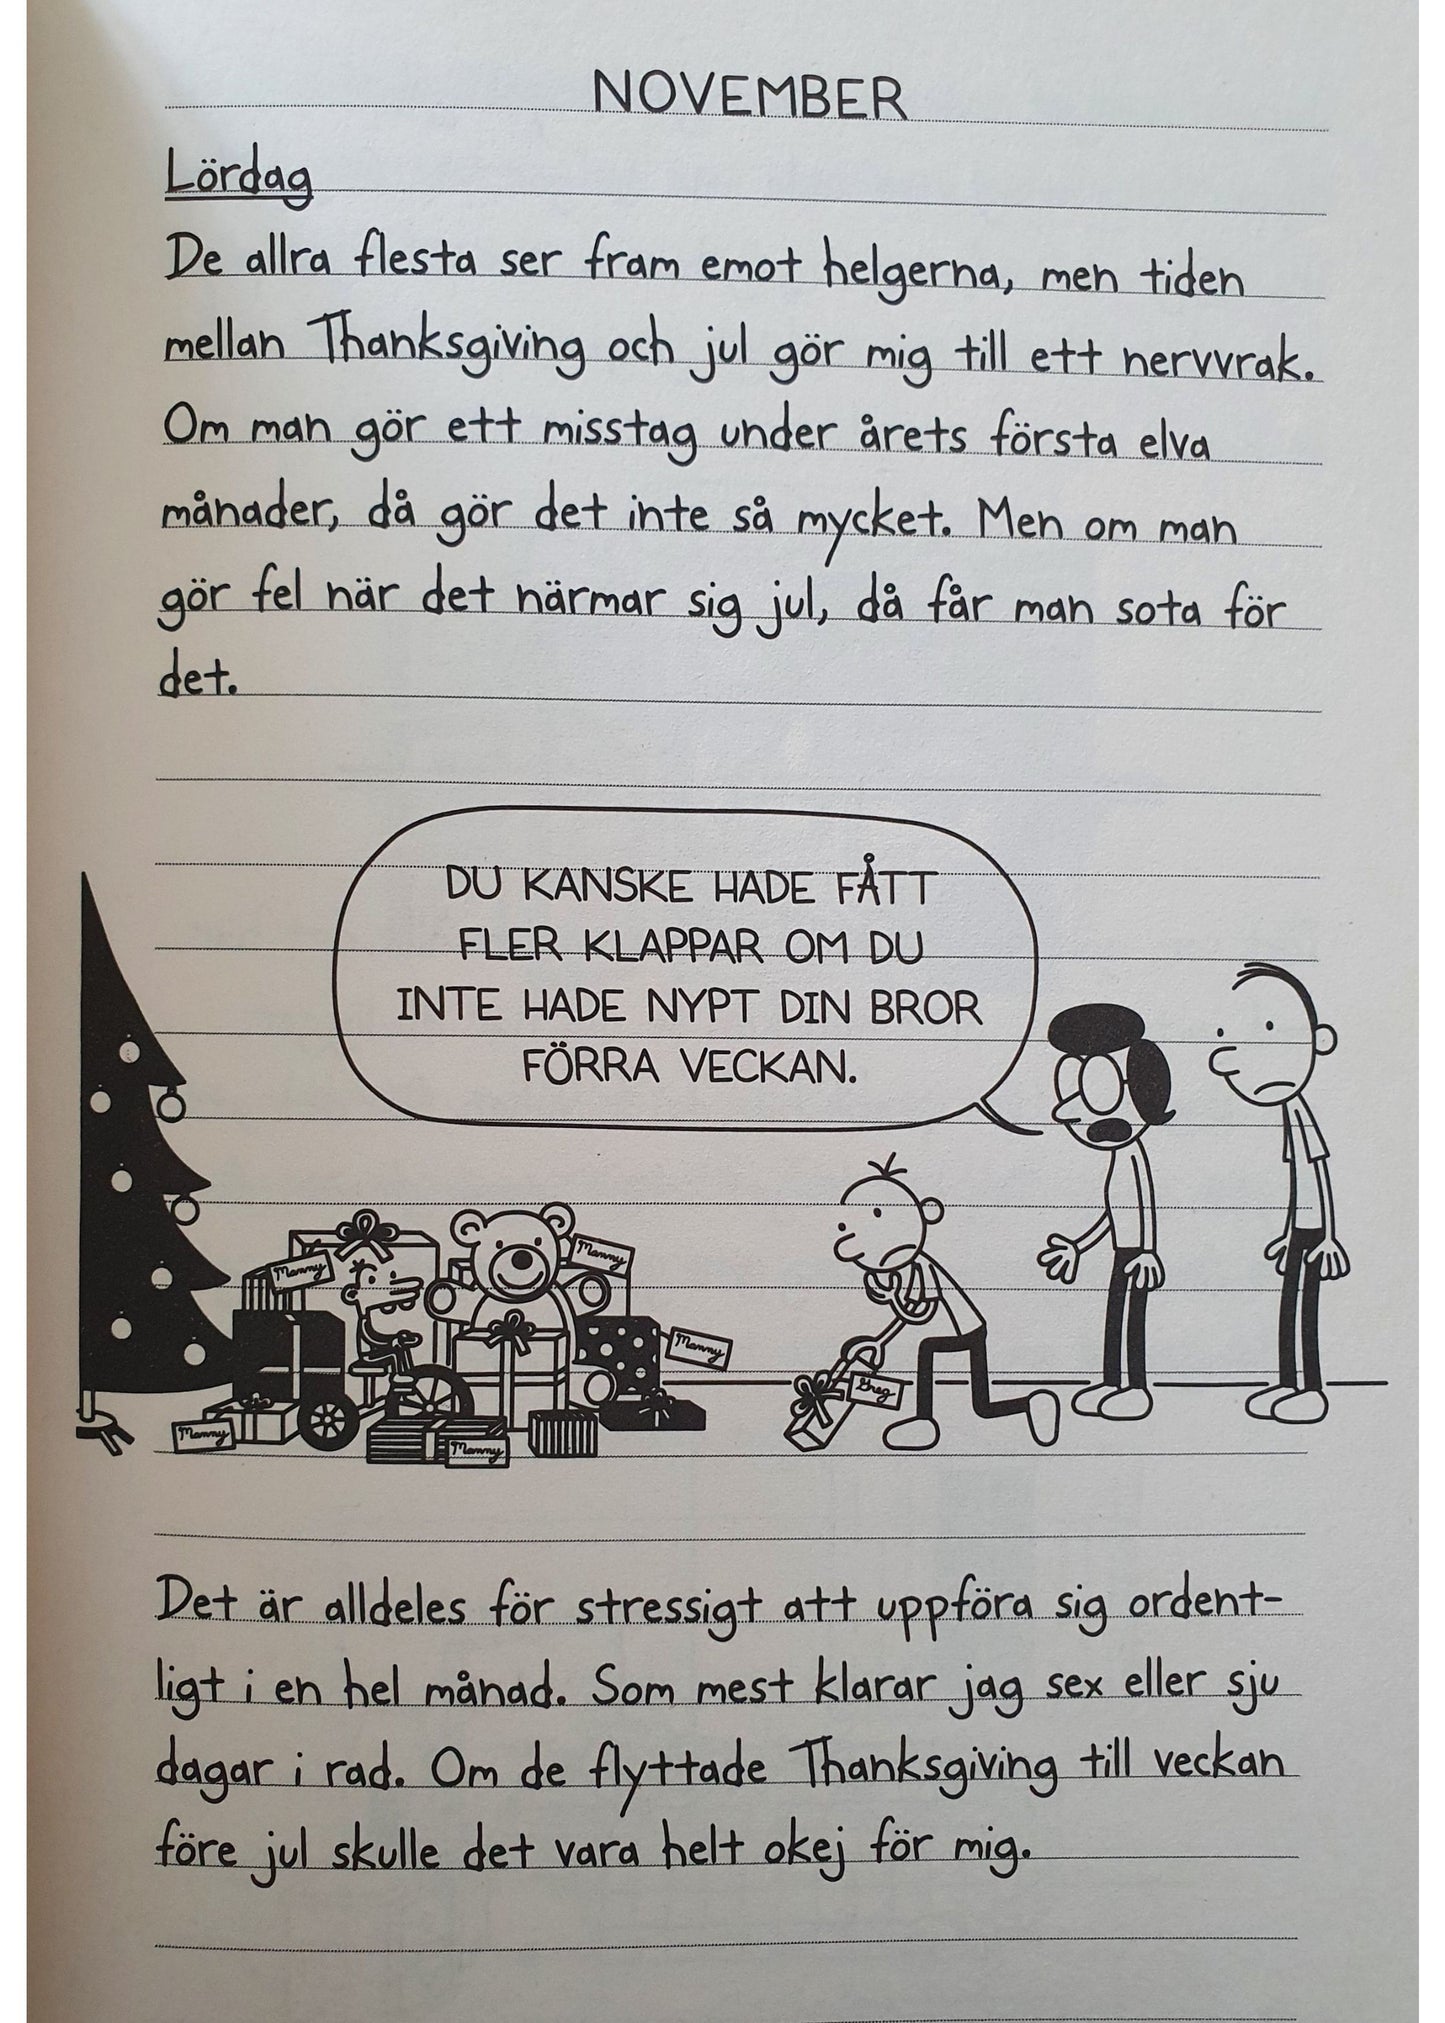 NOVEMBER
Lördag
De allra flesta ser fram emot helgerna, men tiden
mellan Thanksgiving och jul gör mig till ett nervvrak.
Om man gör ett misstag under årets första elva
månader, då gör det inte så mycket. Men om man
gör fel när det närmar sig jul, då får man sota för
det.
DU KANSKE HADE FÅTT
FLER KLAPPAR OM DU
INTE HADE NYPT DIN BROR
FÖRRA VECKAN.
Manny
Manny
Manny
Greg
Manny
Manny
Det är alldeles för stressigt att uppföra sig ordent-
ligt i en hel månad. Som mest klarar jag sex eller sju
dagar i rad. Om de flyttade Thanksgiving till veckan
före jul skulle det vara helt okej för mig.